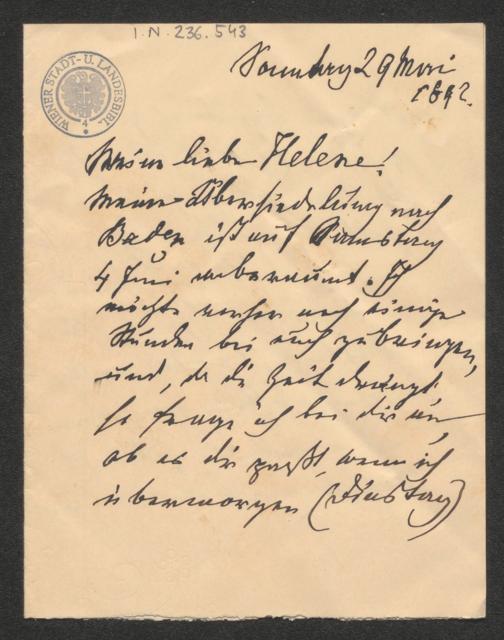 I.N. 236.543
WIENER STADT- U. LANDESBIBL.
4
Sonntag 29 Mai
1892.
Meine liebe Helene!
Meine Übersiedelung nach
Baden ist auf Samstag
4 Juni anberaumt. Ich
möchte vorher noch einige
Stunden bei euch zubringen,
und, da die Zeit drängt
so frage ich bei dir an,
ob es dir paßt, wenn ich
übermorgen (Dinstag)